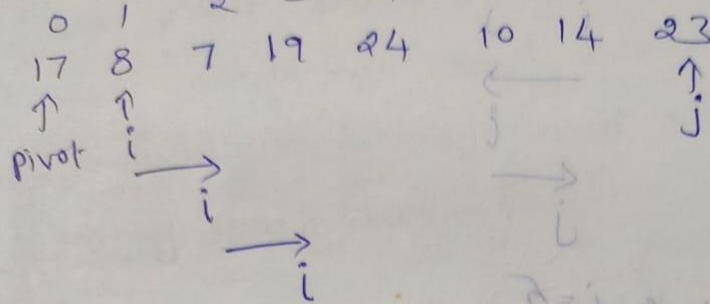 0 1 2
17 8 7 19 24 10 14 23
↑ ↑ ↑
pivot i j
→
i
→
i